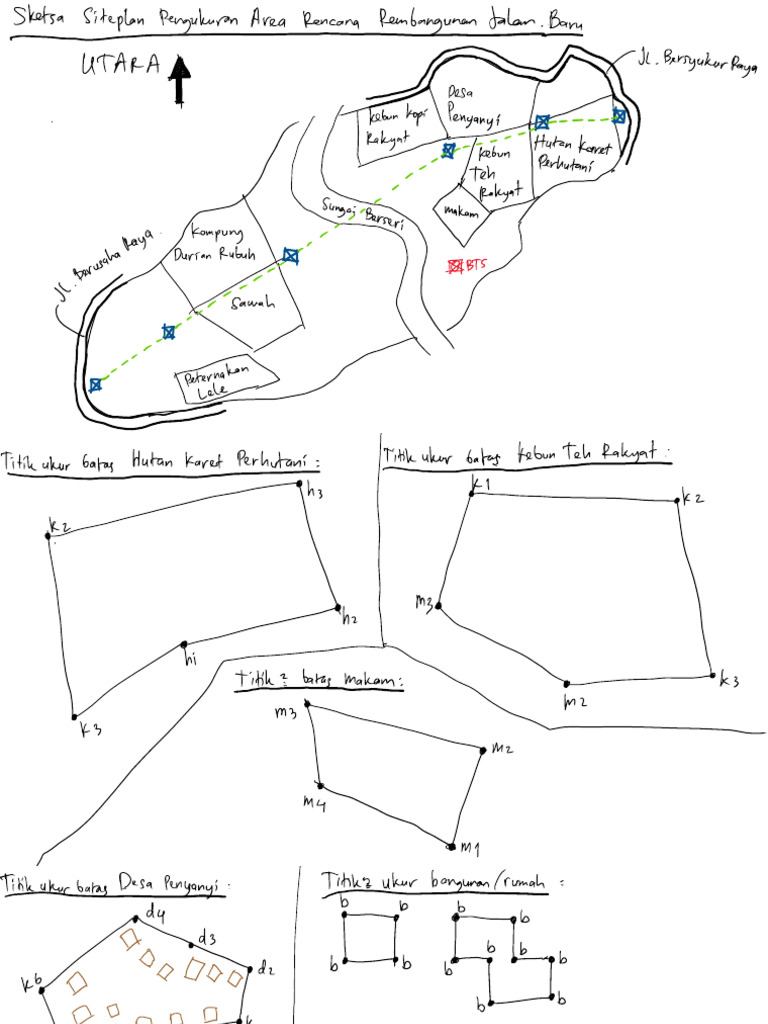 Sketsa Siteplan Pengukuran Area Rencana Pembangunan Jalan Baru
UTARA
Jl. Bersyukur Raya
Desa
Penyanyi
Kebun Kopi
Rakyat
Hutan Karet
Perhutani
Kebun
Teh
Rakyat
makam
Sungai Berseri
BTS
Kampung
Durian Rubuh
Jl. Berusaha Raya.
Sawah
Peternakan
Lele
Titik ukur batas Hutan Karet Perhutani :
k2
h3
h2
h1
k3
Titik ukur batas Kebun Teh Rakyat :
k1
k2
m3
k3
m2
Titik2 batas makam :
m3
m2
m4
m1
Titik ukur batas Desa Penyanyi :
d4
d3
d2
k6
k
Titik2 ukur bangunan/rumah :
b b b b
b b b b b
b b